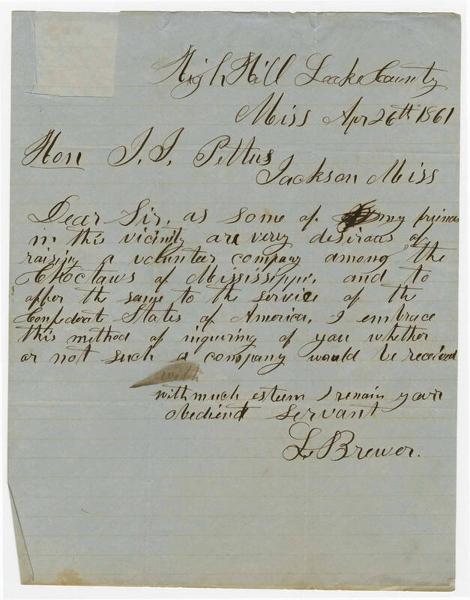 High Hill Leake County
Miss Apr 26th 1861
Hon J. J. Pettus
Jackson Miss
Dear Sir, as some of my friends
in this vicinity are very desiraus of
raising a volunter company among the
Choctaws of Mississippi, and to
offer the same to the service of the
Confederat States of America, I embrace
this method of inquiring of you whether
or not such a company would be received
with
with much esteem I remain your
obedient servant
L. Brewer.